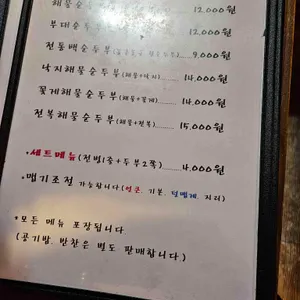 해물순두부 12,000원
부대순두부 12,000원
전통백순두부 9,000원
낙지해물순두부(해물+낙지) 14,000원
꽃게해물순두부(해물+꽃게) 14,000원
전복해물순두부(해물+전복) 15,000원
*세트메뉴(전병1종+두부2쪽) 4,000원
*맵기조절 가능합니다(얼큰, 기본, 덜맵게, 지리)
*모든 메뉴 포장됩니다
(공기밥, 반찬은 별도 판매합니다)